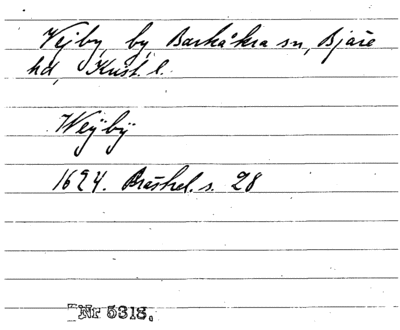 Vejby, by, Barkåkra sn, Bjäre
hd, Krist. l.
Weÿbÿ
1624. s. 28
Nr 5313.